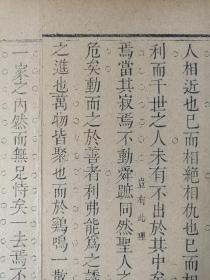 人相近也已而相絕相仇也已而
利而千世之人未有不出於其中矣
豈有此理
焉當其寂焉不動舜蹠同然聖人之
危矣動而之於善者利弗能為之誘
之進也萬物皆聚也而於鷄鳴一散
一家之內然而無足恃矣一去焉不